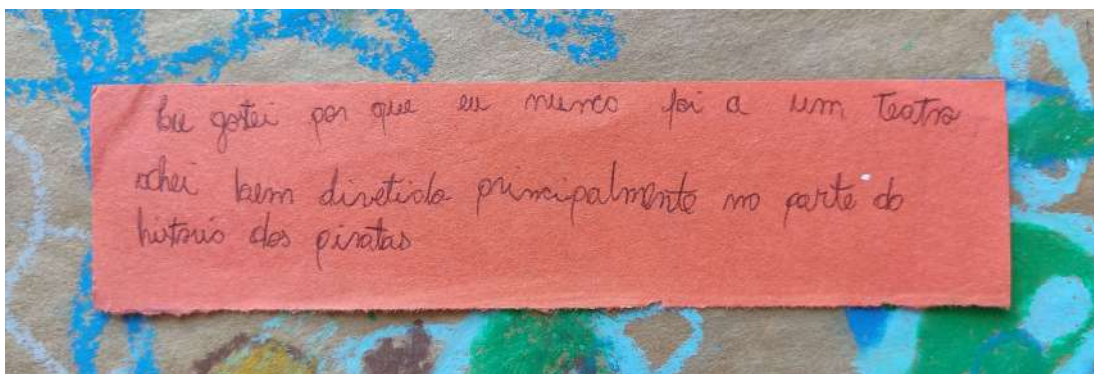 Eu gostei por que eu nunca foi a um teatro
achei bem divetido principalmente na parte da
história dos piratas